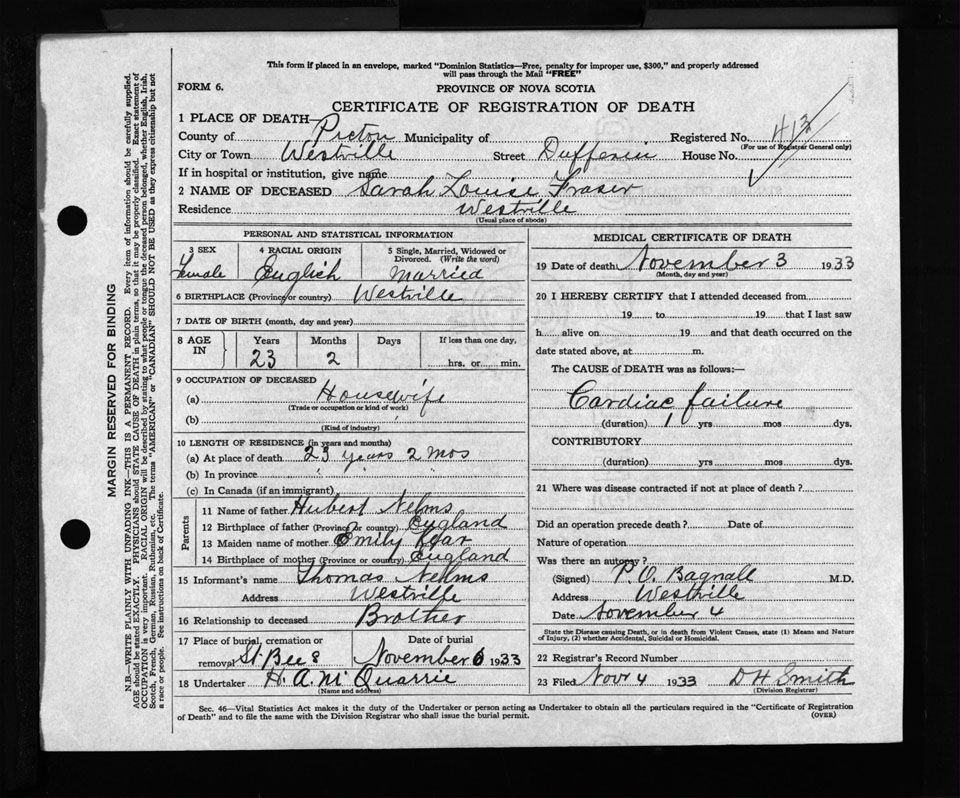 This form if placed in an envelope, marked "Dominion Statistics—Free, penalty for improper use, $300," and properly addressed
will pass through the Mail "FREE"
FORM 6.
PROVINCE OF NOVA SCOTIA
CERTIFICATE OF REGISTRATION OF DEATH
1 PLACE OF DEATH—
County of Pictou Municipality of Registered No. 413
(For use of Registrar General only)
City or Town Westville Street Dufferin House No.
If in hospital or institution, give name
2 NAME OF DECEASED Sarah Louise Fraser
Residence Westville
(Usual place of abode)
PERSONAL AND STATISTICAL INFORMATION
3 SEX 4 RACIAL ORIGIN 5 Single, Married, Widowed or
Divorced. (Write the word)
Female English Married
6 BIRTHPLACE (Province or country) Westville
7 DATE OF BIRTH (month, day and year)
8 AGE IN Years Months Days If less than one day,
23 2 hrs. or min.
9 OCCUPATION OF DECEASED
(a) Housewife
(Trade or occupation or kind of work)
(b)
(Kind of industry)
10 LENGTH OF RESIDENCE (in years and months)
(a) At place of death 23 years 2 mos
(b) In province " " "
(c) In Canada (if an immigrant)
Parents
11 Name of father Hubert Nelms
12 Birthplace of father (Province or country) England
13 Maiden name of mother Emily
14 Birthplace of mother (Province or country) England
15 Informant's name Thomas Nelms
Address Westville
16 Relationship to deceased Brother
17 Place of burial, cremation or Date of burial
removal St. Bees November 6 1933
18 Undertaker H. A. McQuarrie
(Name and address)
MEDICAL CERTIFICATE OF DEATH
19 Date of death November 3 1933
(Month, day and year)
20 I HEREBY CERTIFY that I attended deceased from
19 to 19 that I last saw
h alive on 19 and that death occurred on the
date stated above, at m.
The CAUSE of DEATH was as follows:—
Cardiac failure
(duration) yrs mos dys.
CONTRIBUTORY
(duration) yrs mos dys.
21 Where was disease contracted if not at place of death?
Did an operation precede death? Date of
Nature of operation
Was there an autopsy?
(Signed) P. O. Bagnall M.D.
Address Westville
Date November 4
State the Disease causing Death, or in death from Violent Causes, state (1) Means and Nature
of Injury, (2) whether Accidental, Suicidal or Homicidal.
22 Registrar's Record Number
23 Filed Novr 4 1933 D H Smith
(Division Registrar)
Sec. 46—Vital Statistics Act makes it the duty of the Undertaker or person acting as Undertaker to obtain all the particulars required in the "Certificate of Registration
of Death" and to file the same with the Division Registrar who shall issue the burial permit.
(OVER)
MARGIN RESERVED FOR BINDING
N.B.—WRITE PLAINLY WITH UNFADING INK—THIS IS A PERMANENT RECORD. Every item of information should be carefully supplied.
AGE should be stated EXACTLY. PHYSICIANS should STATE CAUSE OF DEATH in plain terms, so that it may be properly classified. Exact statement of
OCCUPATION is very important. RACIAL ORIGIN will be described by stating to what people or tongue the deceased person belonged, whether English, Irish,
Scotch, French, German, Russian, Ruthenian, etc. The terms "AMERICAN" or "CANADIAN" SHOULD NOT BE USED as they express citizenship but not
a race or people. See instructions on back of Certificate.